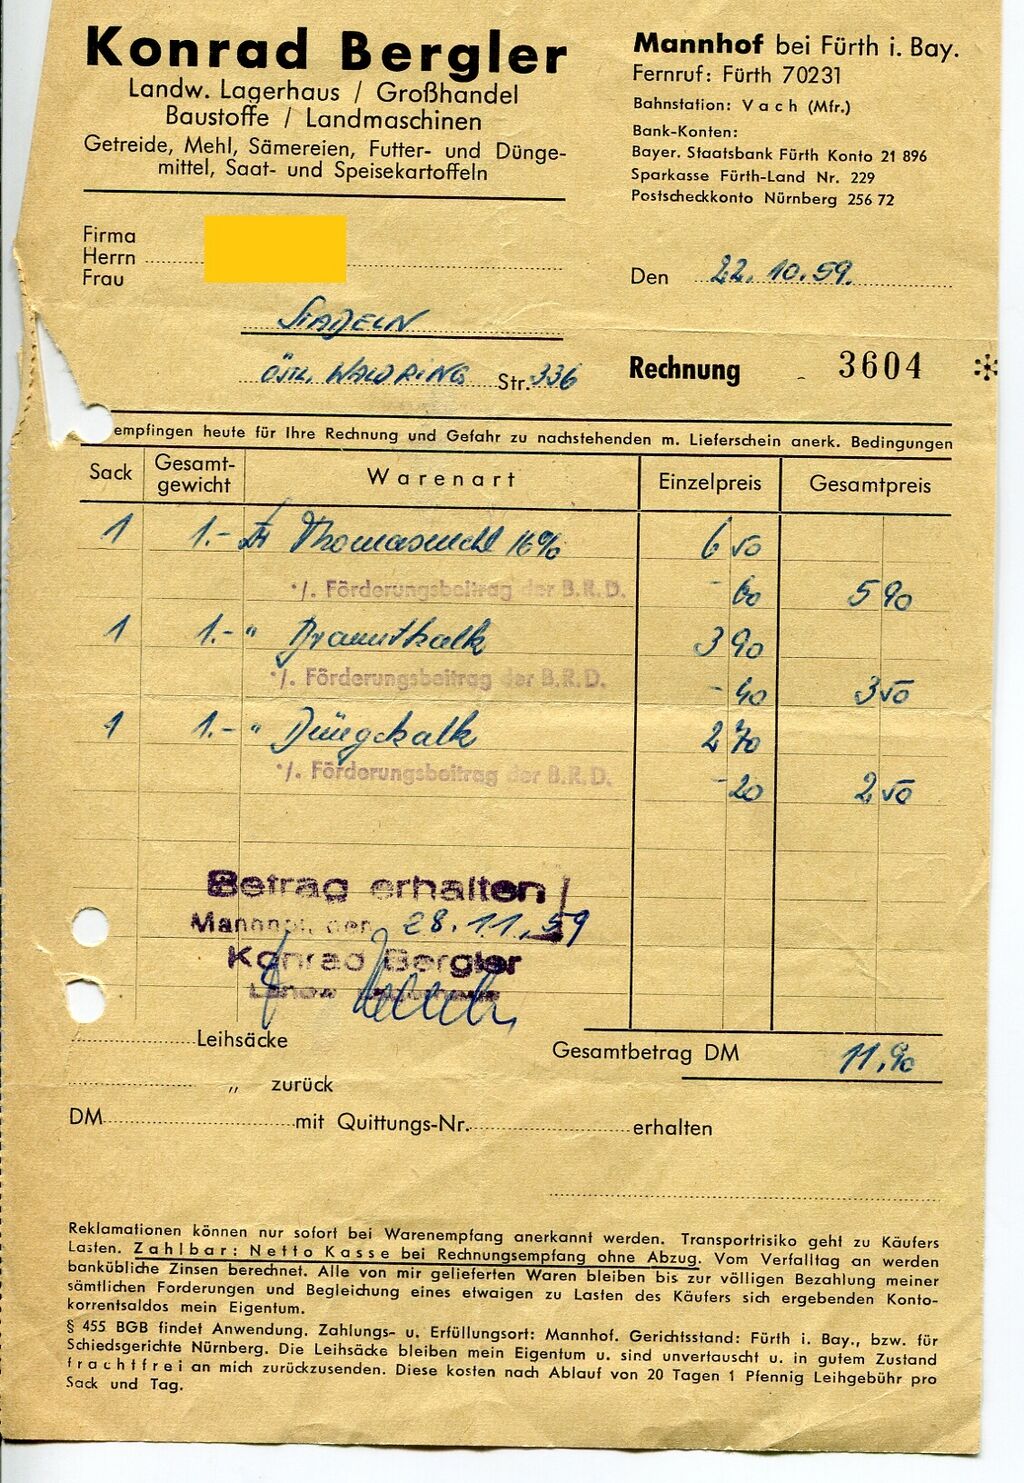 Konrad Bergler
Landw. Lagerhaus / Großhandel
Baustoffe / Landmaschinen
Getreide, Mehl, Sämereien, Futter- und Dünge-
mittel, Saat- und Speisekartoffeln
Mannhof bei Fürth i. Bay.
Fernruf: Fürth 70231
Bahnstation: Vach (Mfr.)
Bank-Konten:
Bayer. Staatsbank Fürth Konto 21 896
Sparkasse Fürth-Land Nr. 229
Postscheckkonto Nürnberg 256 72
Firma
Herrn
Frau
Den 22.10.59.
Stadeln
Östl. Waldring Str. 336
Rechnung 3604 *
empfingen heute für Ihre Rechnung und Gefahr zu nachstehenden m. Lieferschein anerk. Bedingungen
Sack Gesamt-gewicht Warenart Einzelpreis Gesamtpreis
1 1.- Ztr Thomasmehl 16% 6 50
·/. Förderungsbeitrag der B.R.D. - 60 5 90
1 1.- " Branntkalk 3 90
·/. Förderungsbeitrag der B.R.D. - 40 3 50
1 1.- " Düngekalk 2 70
·/. Förderungsbeitrag der B.R.D. - 20 2 50
Betrag erhalten
Mannhof, den 28.11.59
Konrad Bergler
Landw. Lagerhaus
Leihsäcke
Gesamtbetrag DM 11,90
„ zurück
DM mit Quittungs-Nr. erhalten
Reklamationen können nur sofort bei Warenempfang anerkannt werden. Transportrisiko geht zu Käufers
Lasten. Zahlbar: Netto Kasse bei Rechnungsempfang ohne Abzug. Vom Verfalltag an werden
bankübliche Zinsen berechnet. Alle von mir gelieferten Waren bleiben bis zur völligen Bezahlung meiner
sämtlichen Forderungen und Begleichung eines etwaigen zu Lasten des Käufers sich ergebenden Konto-
korrentsaldos mein Eigentum.
§ 455 BGB findet Anwendung. Zahlungs- u. Erfüllungsort: Mannhof. Gerichtsstand: Fürth i. Bay., bzw. für
Schiedsgerichte Nürnberg. Die Leihsäcke bleiben mein Eigentum u. sind unvertauscht u. in gutem Zustand
frachtfrei an mich zurückzusenden. Diese kosten nach Ablauf von 20 Tagen 1 Pfennig Leihgebühr pro
Sack und Tag.